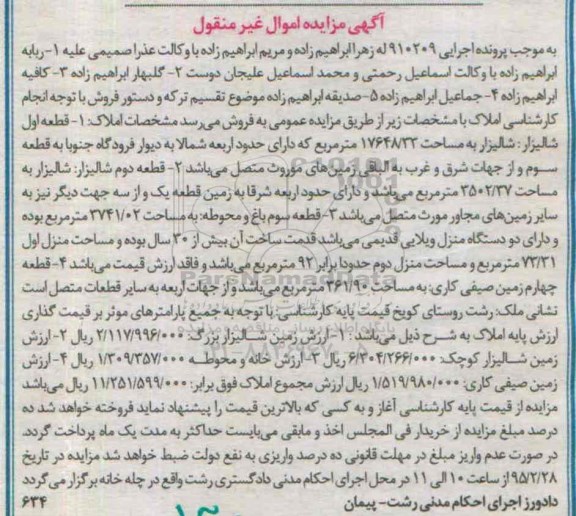 آگهی مزایده اموال غیر منقول
به موجب پرونده اجرایی ۹۱۰۲۰۹ له زهرا ابراهیم زاده و مریم ابراهیم زاده با وکالت عذرا صمیمی علیه ۱- ربابه
ابراهیم زاده با وکالت اسماعیل رحمتی و محمد اسماعیل علیجان دوست ۲- گلبهار ابراهیم زاده ۳- کافیه
ابراهیم زاده ۴- جماعیل ابراهیم زاده ۵-صدیقه ابراهیم زاده موضوع تقسیم ترکه و دستور فروش با توجه انجام
کارشناسی املاک با مشخصات زیر از طریق مزایده عمومی به فروش می رسد مشخصات املاک: ۱- قطعه اول
شالیزار: شالیزار به مساحت ۱۷۶۴۸/۳۳ مترمربع که دارای حدود اربعه شمالا به دیوار فرودگاه جنوبا به قطعه
سوم و از جهات شرق و غرب به الباقی زمین های موروث متصل می باشد ۲- قطعه دوم شالیزار: شالیزار به
مساحت ۳۵۰۲/۳۷ مترمربع می باشد و دارای حدود اربعه شرقا به زمین قطعه یک و از سه جهت دیگر نیز به
سایر زمین های مجاور مورث متصل می باشد ۳- قطعه سوم باغ و محوطه: به مساحت ۳۷۴۱/۰۲ مترمربع بوده
و دارای دو دستگاه منزل ویلایی قدیمی می باشد قدمت ساخت آن بیش از ۳۰ سال بوده و مساحت منزل اول
۷۳/۳۱ مترمربع و مساحت منزل دوم حدودا برابر ۹۲ مترمربع می باشد و فاقد ارزش قیمت می باشد ۴- قطعه
چهارم زمین صیفی کاری: به مساحت ۳۶۱/۹۰ مترمربع می باشد و از جهات اربعه به سایر قطعات متصل است
نشانی ملک: رشت روستای کویخ قیمت پایه کارشناسی: با توجه به جمیع پارامترهای موثر بر قیمت گذاری
ارزش پایه املاک به شرح ذیل می باشد: ۱- ارزش زمین شالیزار بزرگ: ۲/۱۱۷/۹۹۶/۰۰۰ ریال ۲- ارزش
زمین شالیزار کوچک: ۶/۳۰۴/۲۶۶/۰۰۰ ریال ۳- ارزش خانه و محوطه ۱/۳۰۹/۳۵۷/۰۰۰ ریال ۴- ارزش
زمین صیفی کاری: ۱/۵۱۹/۹۸۰/۰۰۰ ریال ارزش مجموع املاک فوق برابر: ۱۱/۲۵۱/۵۹۹/۰۰۰ ریال می باشد
مزایده از قیمت پایه کارشناسی آغاز و به کسی که بالاترین قیمت را پیشنهاد نماید فروخته خواهد شد ده
درصد مبلغ مزایده از خریدار فی المجلس اخذ و مابقی می بایست حداکثر به مدت یک ماه پرداخت گردد.
در صورت عدم واریز مبلغ در مهلت قانونی ده درصد واریزی به نفع دولت ضبط خواهد شد مزایده در تاریخ
۹۵/۲/۲۸ از ساعت ۱۰ الی ۱۱ در محل اجرای احکام مدنی دادگستری رشت واقع در چله خانه برگزار می گردد
دادورز اجرای احکام مدنی رشت- پیمان ۶۳۴
ParsNamadData